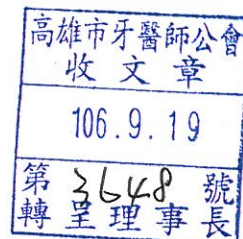 高雄市牙醫師公會
收文章
106.9.19
第3648號
轉呈理事長